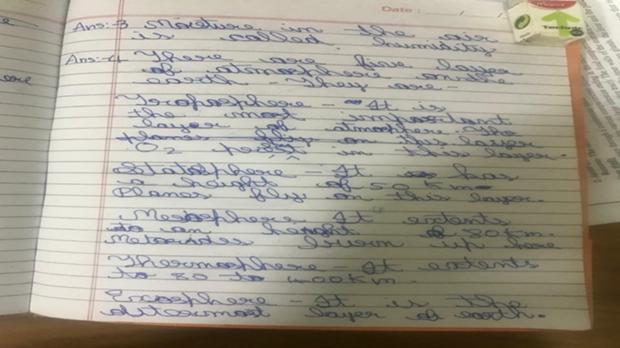 Date :
Ans:-3 Moisture in the air
is called humidity
Ans:-4 There are five layer
of atmosphere on the
earth - They are -
Troposphere - It is
the most important
layer of atmosphere. The
planes on this layer
O2 in this layer.
- It has
a height of 50 Km
Planes fly on this layer.
Mesosphere It extents
to an height of 80Km.
burn up here
Thermosphere - It extents
to 80 to 400Km.
Exosphere - It is the
layer of earth.